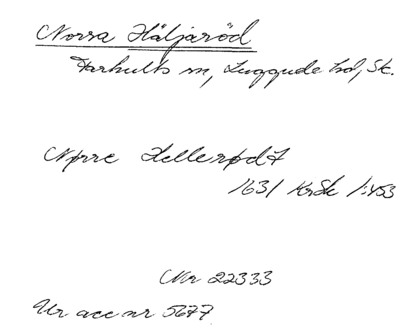 Norra Häljaröd
Farhults sn, Luggude hd, Sk.
Nørre Hellerødt
1631 KrSk 1:453
Nr 22333
Ur acc nr 5677